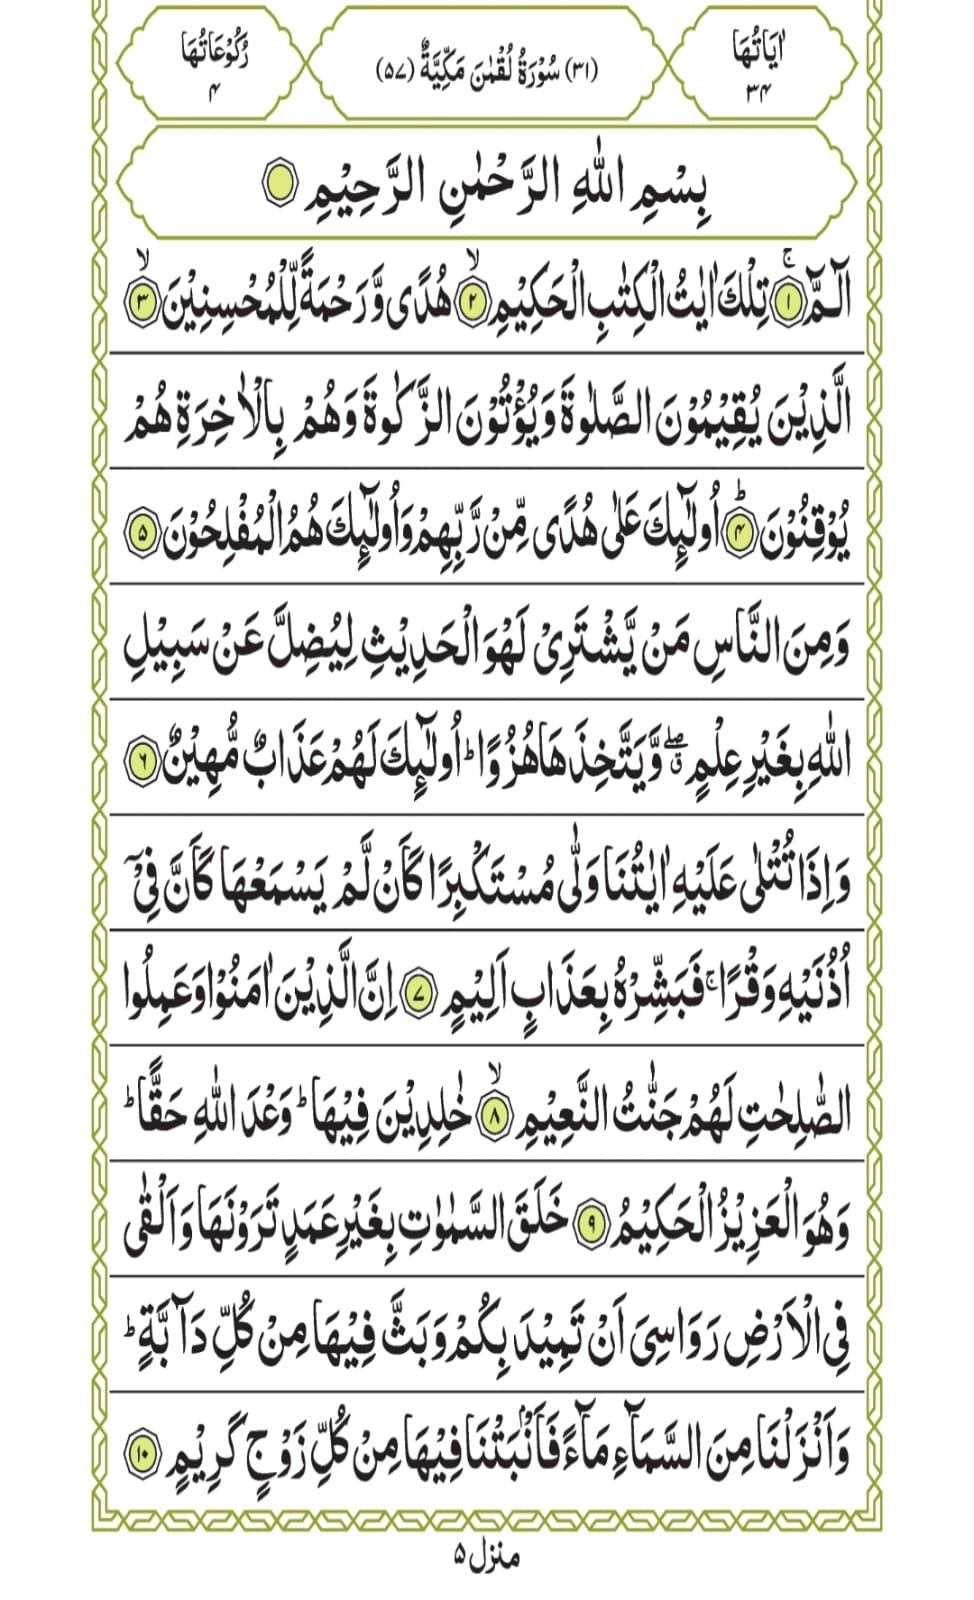 اٰيَاتُهَا ٣٤
(٣١) سُوْرَةُ لُقْمٰنَ مَكِّيَّةٌ (٥٧)
رُكُوْعَاتُهَا ٤
بِسْمِ اللّٰهِ الرَّحْمٰنِ الرَّحِيْمِ
الٓمّٓ ۚ ﴿١﴾ تِلْكَ اٰيٰتُ الْكِتٰبِ الْحَكِيْمِ ۙ ﴿٢﴾ هُدًى وَّرَحْمَةً لِّلْمُحْسِنِيْنَ ۙ ﴿٣﴾
الَّذِيْنَ يُقِيْمُوْنَ الصَّلٰوةَ وَيُؤْتُوْنَ الزَّكٰوةَ وَهُمْ بِالْاٰخِرَةِ هُمْ
يُوْقِنُوْنَ ؕ ﴿٤﴾ اُولٰٓئِكَ عَلٰى هُدًى مِّنْ رَّبِّهِمْ وَاُولٰٓئِكَ هُمُ الْمُفْلِحُوْنَ ﴿٥﴾
وَمِنَ النَّاسِ مَنْ يَّشْتَرِىْ لَهْوَ الْحَدِيْثِ لِيُضِلَّ عَنْ سَبِيْلِ
اللّٰهِ بِغَيْرِ عِلْمٍ ۖق وَّيَتَّخِذَهَا هُزُوًا ؕ اُولٰٓئِكَ لَهُمْ عَذَابٌ مُّهِيْنٌ ﴿٦﴾
وَاِذَا تُتْلٰى عَلَيْهِ اٰيٰتُنَا وَلّٰى مُسْتَكْبِرًا كَاَنْ لَّمْ يَسْمَعْهَا كَاَنَّ فِىْۤ
اُذُنَيْهِ وَقْرًا ۚ فَبَشِّرْهُ بِعَذَابٍ اَلِيْمٍ ﴿٧﴾ اِنَّ الَّذِيْنَ اٰمَنُوْا وَعَمِلُوا
الصّٰلِحٰتِ لَهُمْ جَنّٰتُ النَّعِيْمِ ۙ ﴿٨﴾ خٰلِدِيْنَ فِيْهَا ؕ وَعْدَ اللّٰهِ حَقًّا ؕ
وَهُوَ الْعَزِيْزُ الْحَكِيْمُ ﴿٩﴾ خَلَقَ السَّمٰوٰتِ بِغَيْرِ عَمَدٍ تَرَوْنَهَا وَاَلْقٰى
فِى الْاَرْضِ رَوَاسِىَ اَنْ تَمِيْدَ بِكُمْ وَبَثَّ فِيْهَا مِنْ كُلِّ دَآبَّةٍ ؕ
وَاَنْزَلْنَا مِنَ السَّمَآءِ مَآءً فَاَنْۢبَتْنَا فِيْهَا مِنْ كُلِّ زَوْجٍ كَرِيْمٍ ﴿١٠﴾
منزل ٥